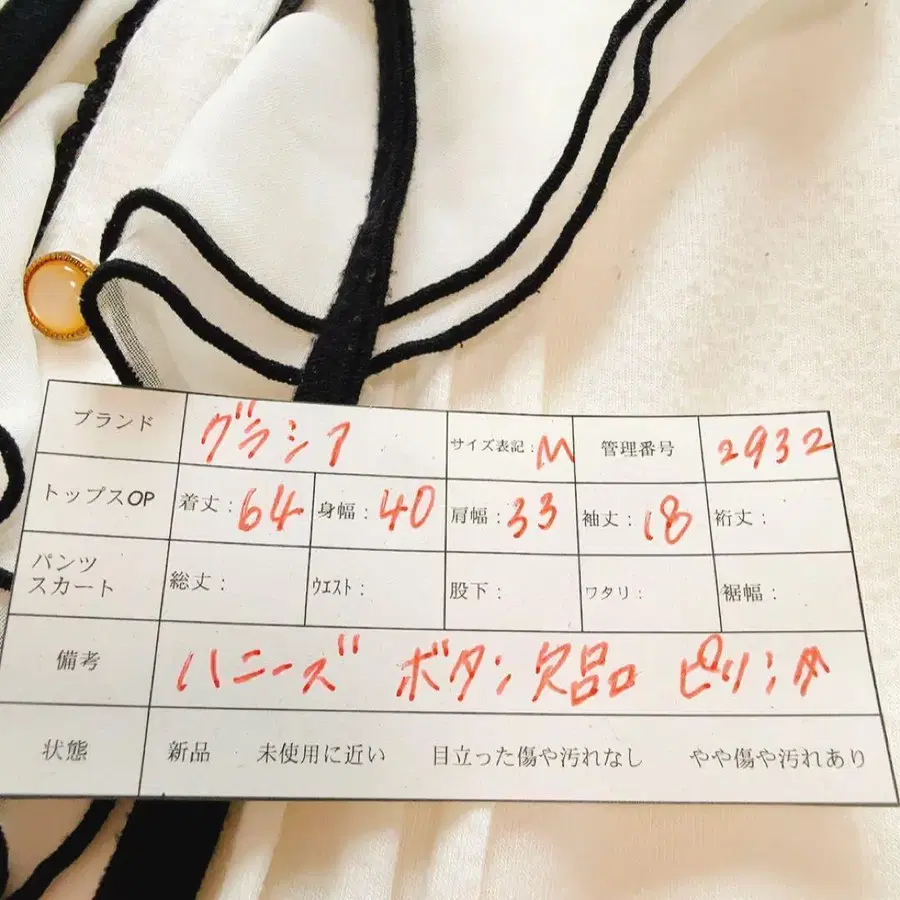 ブランド グラシア サイズ表記：M 管理番号 2932
トップスOP 着丈：64 身幅：40 肩幅：33 袖丈：18 裄丈：
パンツ
スカート 総丈： ウエスト： 股下： ワタリ： 裾幅：
備考 ハニーズ ボタン欠品 ピリング
状態 新品 未使用に近い 目立った傷や汚れなし やや傷や汚れあり